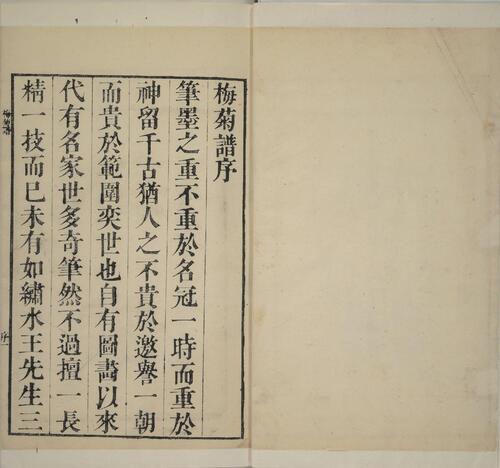 梅菊譜序
筆墨之重不重於名冠一時而重於
神留千古猶人之不貴於邀譽一朝
而貴於範圍奕世也自有圖畵以來
代有名家世多奇筆然不過擅一長
精一技而已未有如繡水王先生三
序一